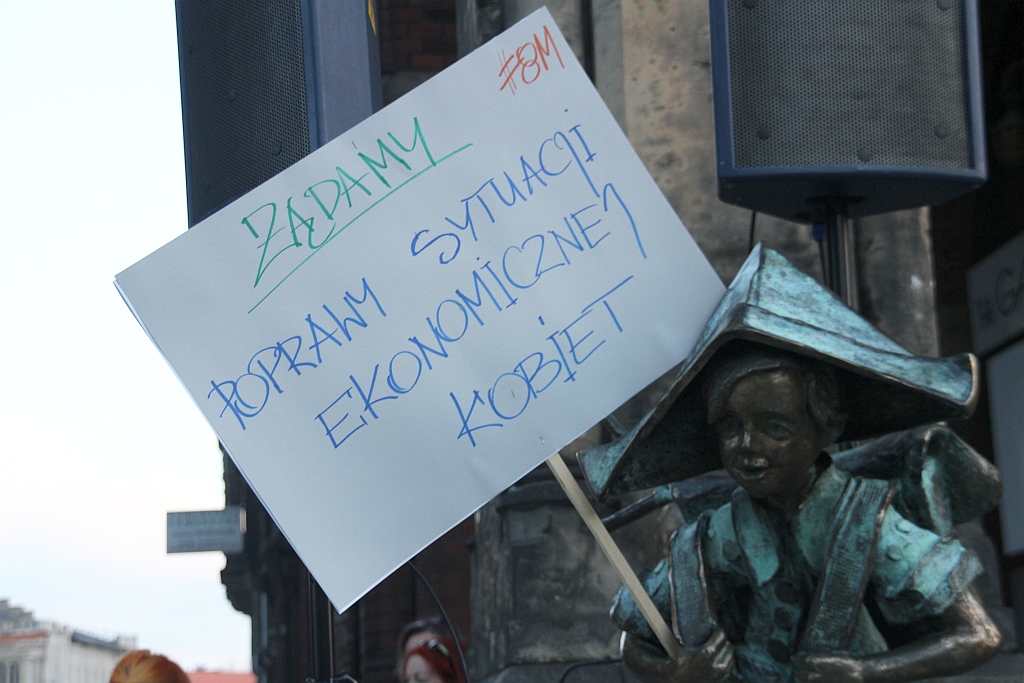 #8M
ŻĄDAMY
POPRAWY SYTUACJI
EKONOMICZNEJ
KOBIET